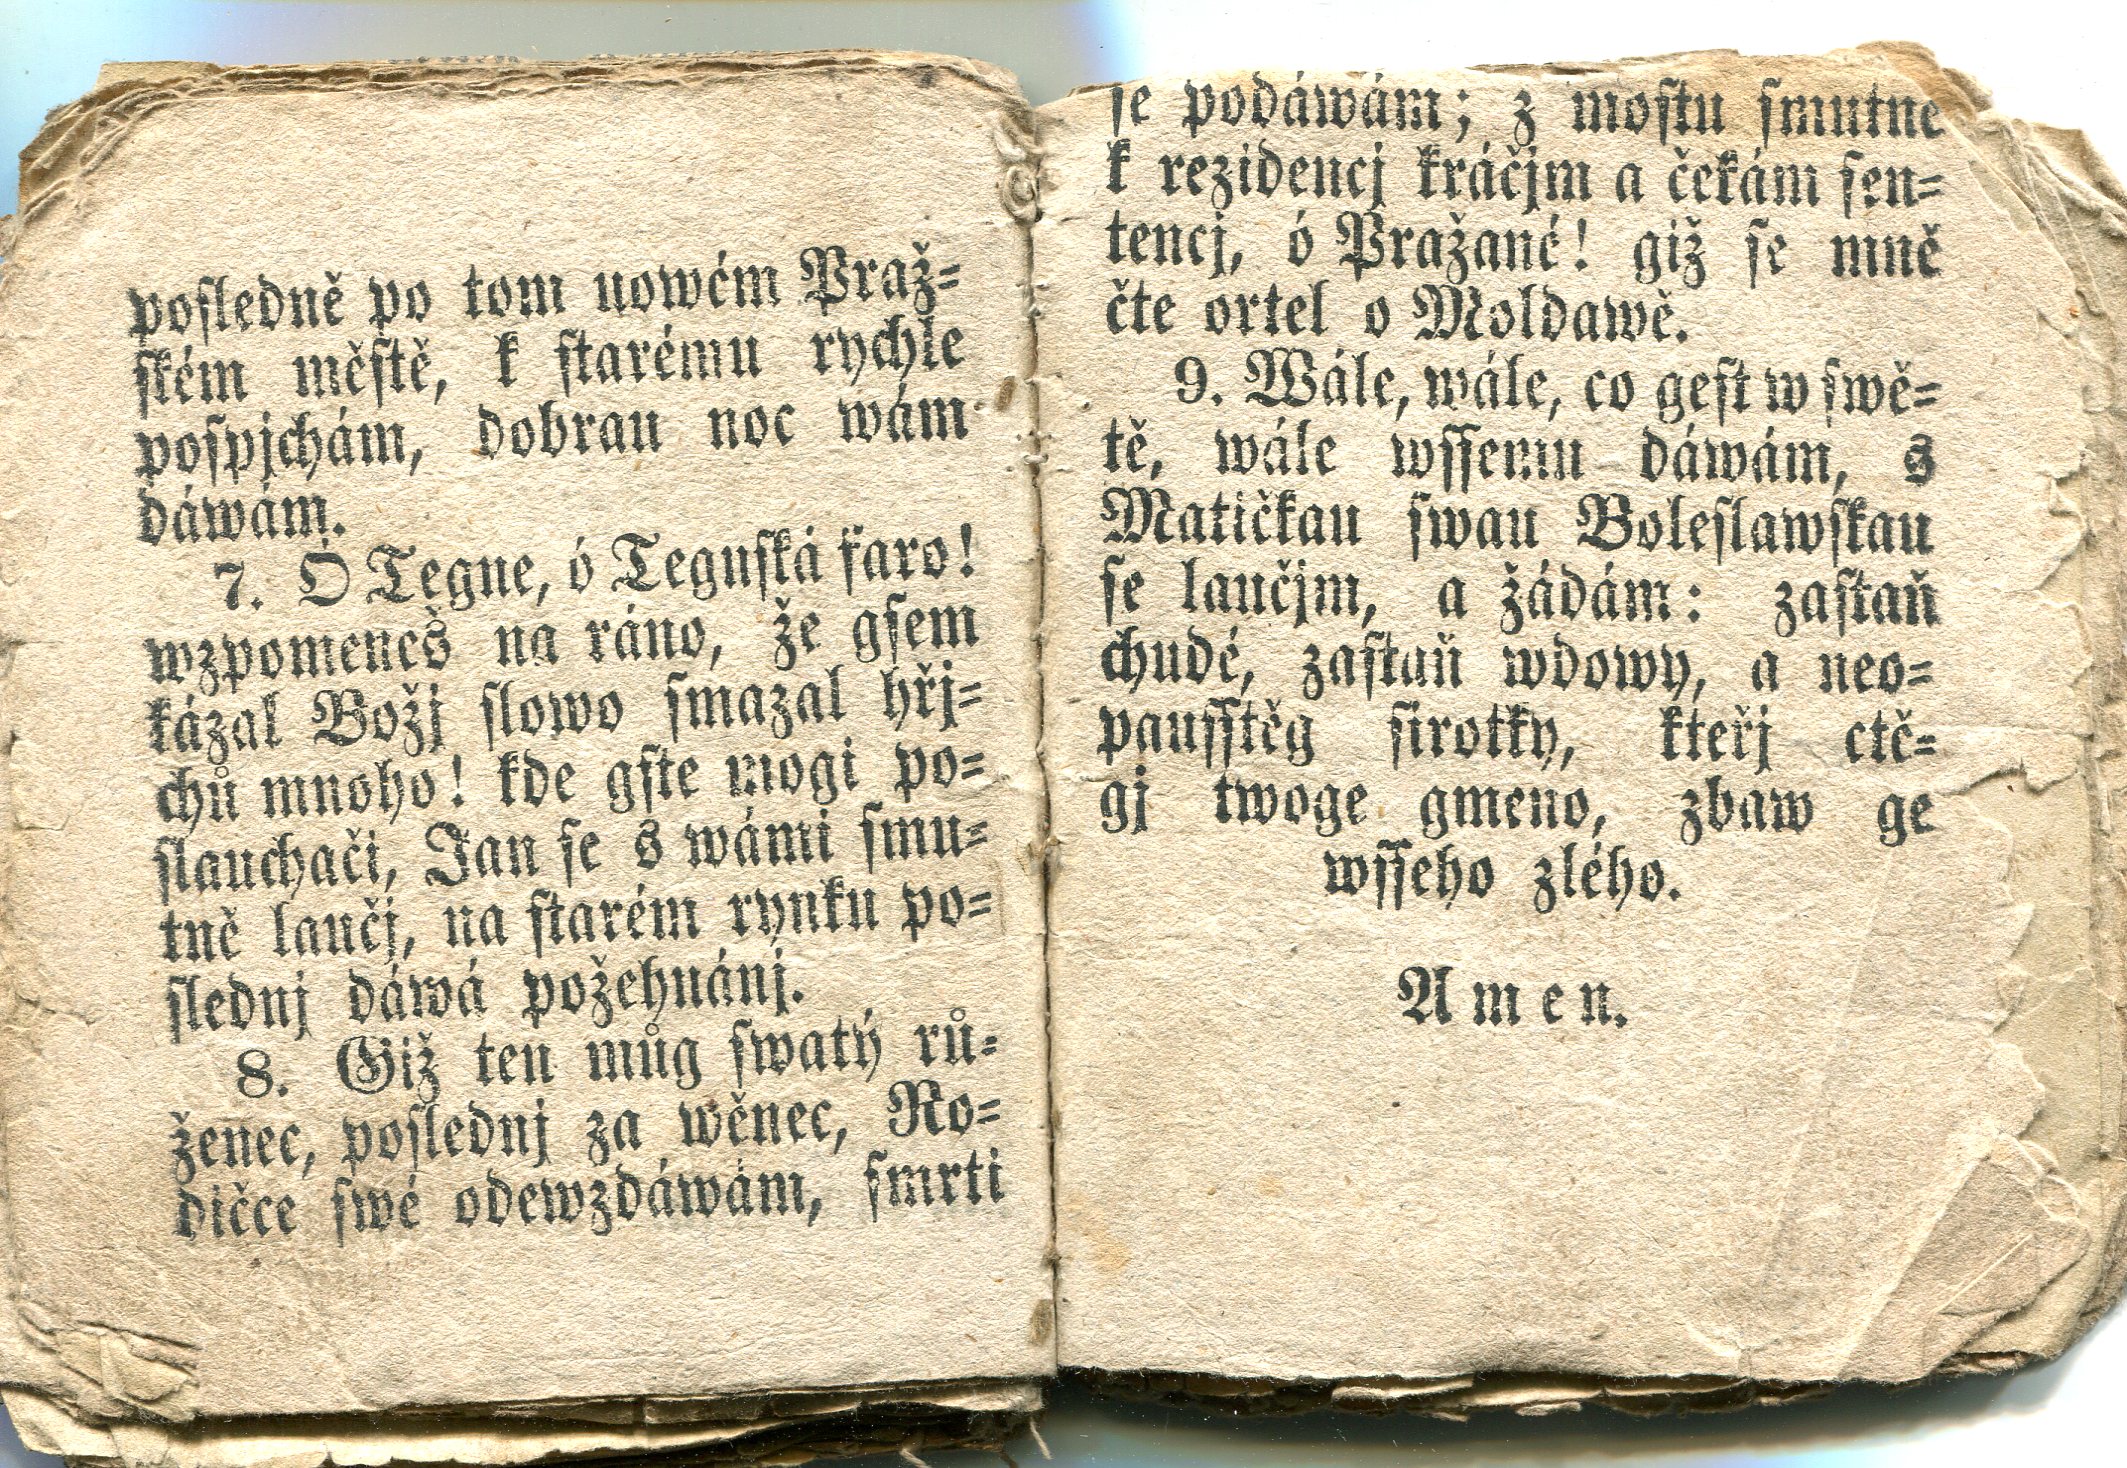 posledně po tom nowém Praž=
ském městě, k starému rychle
pospjchám, dobrau noc wám
dáwám.
7. Ó Tegne, ó Tegnská faro!
wzpomeneš na ráno, že gsem
kázal Božj slowo smazal hřj=
chů mnoho! kde gste mogi po=
slauchači, Jan se s wámi smu=
tně laučj, na starém rynku po=
slednj dáwá požehnánj.
8. Giž ten můg swatý rů=
ženec, poslednj za wěnec, Ro=
dičce swé odewzdáwám, smrti
se podáwám; z mostu smutne
k rezidencj kráčjm a čekám sen=
tencj, ó Pražané! giž se mně
čte ortel o Moldawě.
9. Wále, wále, co gest w swě=
tě, wále wssemu dáwám, s
Matičkau swau Boleslawskau
se laučjm, a žádám: zastaň
chudé, zastaň wdowy, a neo=
pausstěg sirotky, kteřj ctě=
gj twoge gmeno, zbaw ge
wsseho zlého.
Amen.